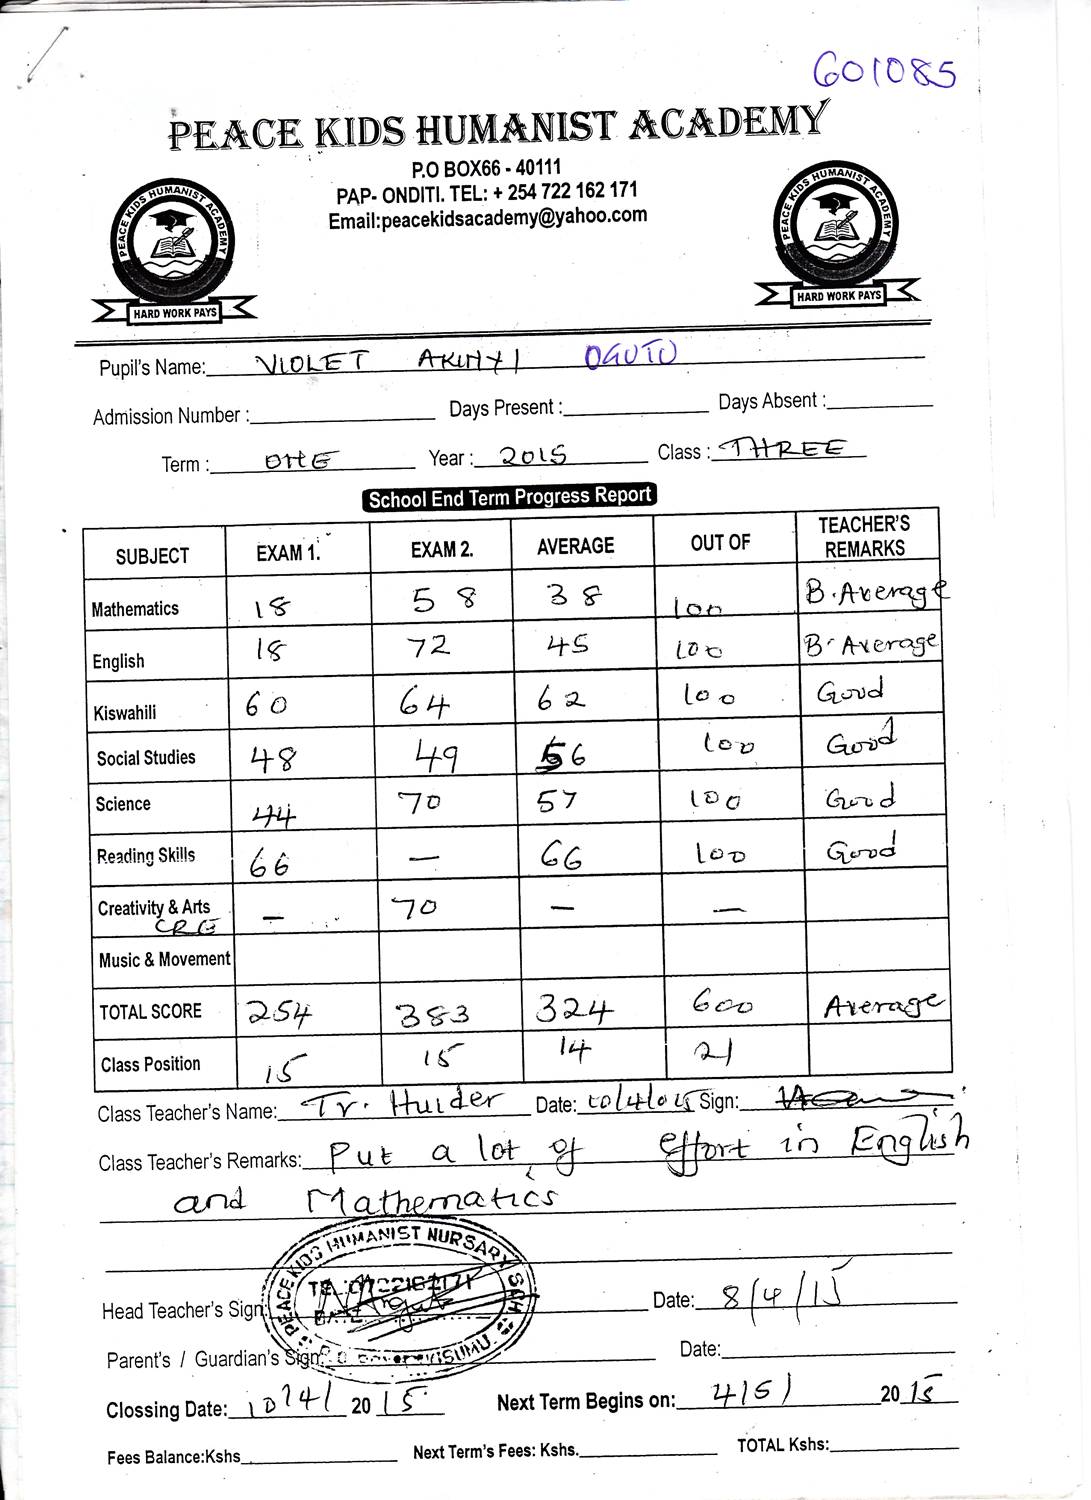 GO1085
PEACE KIDS HUMANIST ACADEMY
P.O BOX66 - 40111
PAP- ONDITI. TEL: + 254 722 162 171
Email:peacekidsacademy@yahoo.com
PEACE KIDS HUMANIST ACADEMY
HARD WORK PAYS
PEACE KIDS HUMANIST ACADEMY
HARD WORK PAYS
Pupil's Name: VIOLET AKINYI OGUTU
Admission Number : Days Present : Days Absent :
Term : ONE Year : 2015 Class : THREE
School End Term Progress Report
SUBJECT EXAM 1. EXAM 2. AVERAGE OUT OF TEACHER'S REMARKS
Mathematics 18 58 38 100 B.Average
English 18 72 45 100 B.Average
Kiswahili 60 64 62 100 Good
Social Studies 48 49 56 100 Good
Science 44 70 57 100 Good
Reading Skills 66 — 66 100 Good
Creativity & Arts — 70 — —
CRE
Music & Movement
TOTAL SCORE 254 383 324 600 Average
Class Position 15 15 14 21
Class Teacher's Name: Tr. Hulder Date: 10/4/015 Sign:
Class Teacher's Remarks: Put a lot of effort in English
and Mathematics
PEACEKIDS HUMANIST NURSARY SCH
Head Teacher's Sign: Date: 8/4/15
Parent's / Guardian's Sign: Date:
KISUMU
Clossing Date: 10/4/ 20 15 Next Term Begins on: 4/5/ 20 15
Fees Balance:Kshs Next Term's Fees: Kshs. TOTAL Kshs: